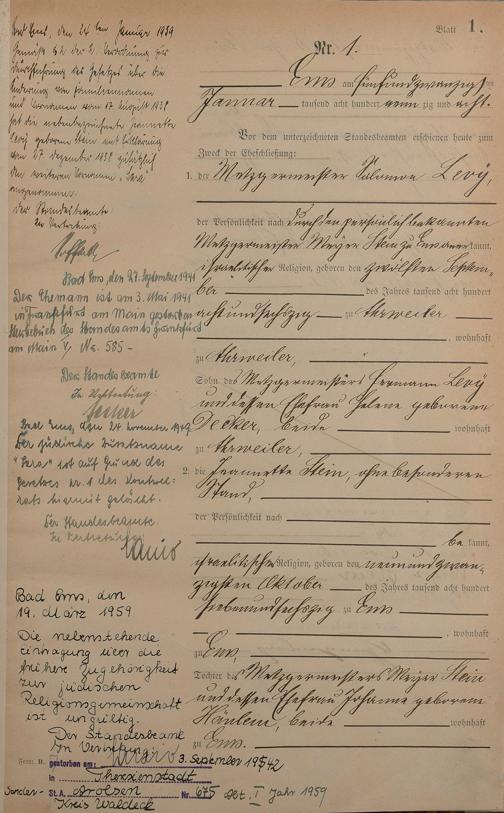 Blatt 1.
Nr. 1.
Ems am fünfundzwanzigsten
Januar tausend acht hundert neunzig und acht
Vor dem unterzeichneten Standesbeamten erschienen heute zum
Zweck der Eheschließung:
1. der Metzgermeister Salomon Levy,
der Persönlichkeit nach durch den persönlich bekannten
Metzgermeister Meyer Stein zu Ems anerkannt,
israelitischer Religion, geboren den zwölften Septem-
ber des Jahres tausend acht hundert
achtundsechszig zu Ahrweiler
, wohnhaft
zu Ahrweiler,
Sohn des Metzgermeisters Hermann Levy
und dessen Ehefrau Helene geborene
Decker, beide wohnhaft
zu Ahrweiler,
2. die Jeannette Stein, ohne besonderen
Stand,
der Persönlichkeit nach
bekannt,
israelitischer Religion, geboren den neunundzwan-
zigsten Oktober des Jahres tausend acht hundert
siebenundsechszig zu Ems
, wohnhaft
zu Ems,
Tochter des Metzgermeisters Meyer Stein
und dessen Ehefrau Johanna geborene
beide wohnhaft
zu Ems.
Bad Ems, den 24ten Januar 1939
Gemäß § 2 der 2. Verordnung zur
Durchführung des Gesetzes über die
Änderung von Familiennamen
und Vornamen vom 17. August 1938
hat die nebenbezeichnete Jeannette
Levy geborene Stein mit Erklärung
vom 17. Dezember 1938 zusätzlich
den weiteren Vornamen "Sara"
angenommen.
Der Standesbeamte
In Vertretung:
Bad Ems, den 27. September 1941
Der Ehemann ist am 3. Mai 1941
in Frankfurt am Main gestorben
Sterbebuch des Standesamts Frankfurt
am Main V, Nr. 585-
Der Standesbeamte
In Vertretung
Bad Ems, den 24. November 1949
Der jüdische Zusatzname
"Sara" ist auf Grund des
Gesetzes Nr. 1 des Kontroll-
rats hiermit gelöscht.
Der Standesbeamte
In Vertretung:
Bad Ems, den
19. März 1959
Die nebenstehende
Eintragung über die
frühere Zugehörigkeit
zur jüdischen
Religionsgemeinschaft
ist ungültig.
Der Standesbeamte
In Vertretung
Form. B.
gestorben am: 3. September 1942
in Theresienstadt
Sonder- St. A. Arolsen Nr. 675 Abt. I Jahr 1959
Kreis Waldeck